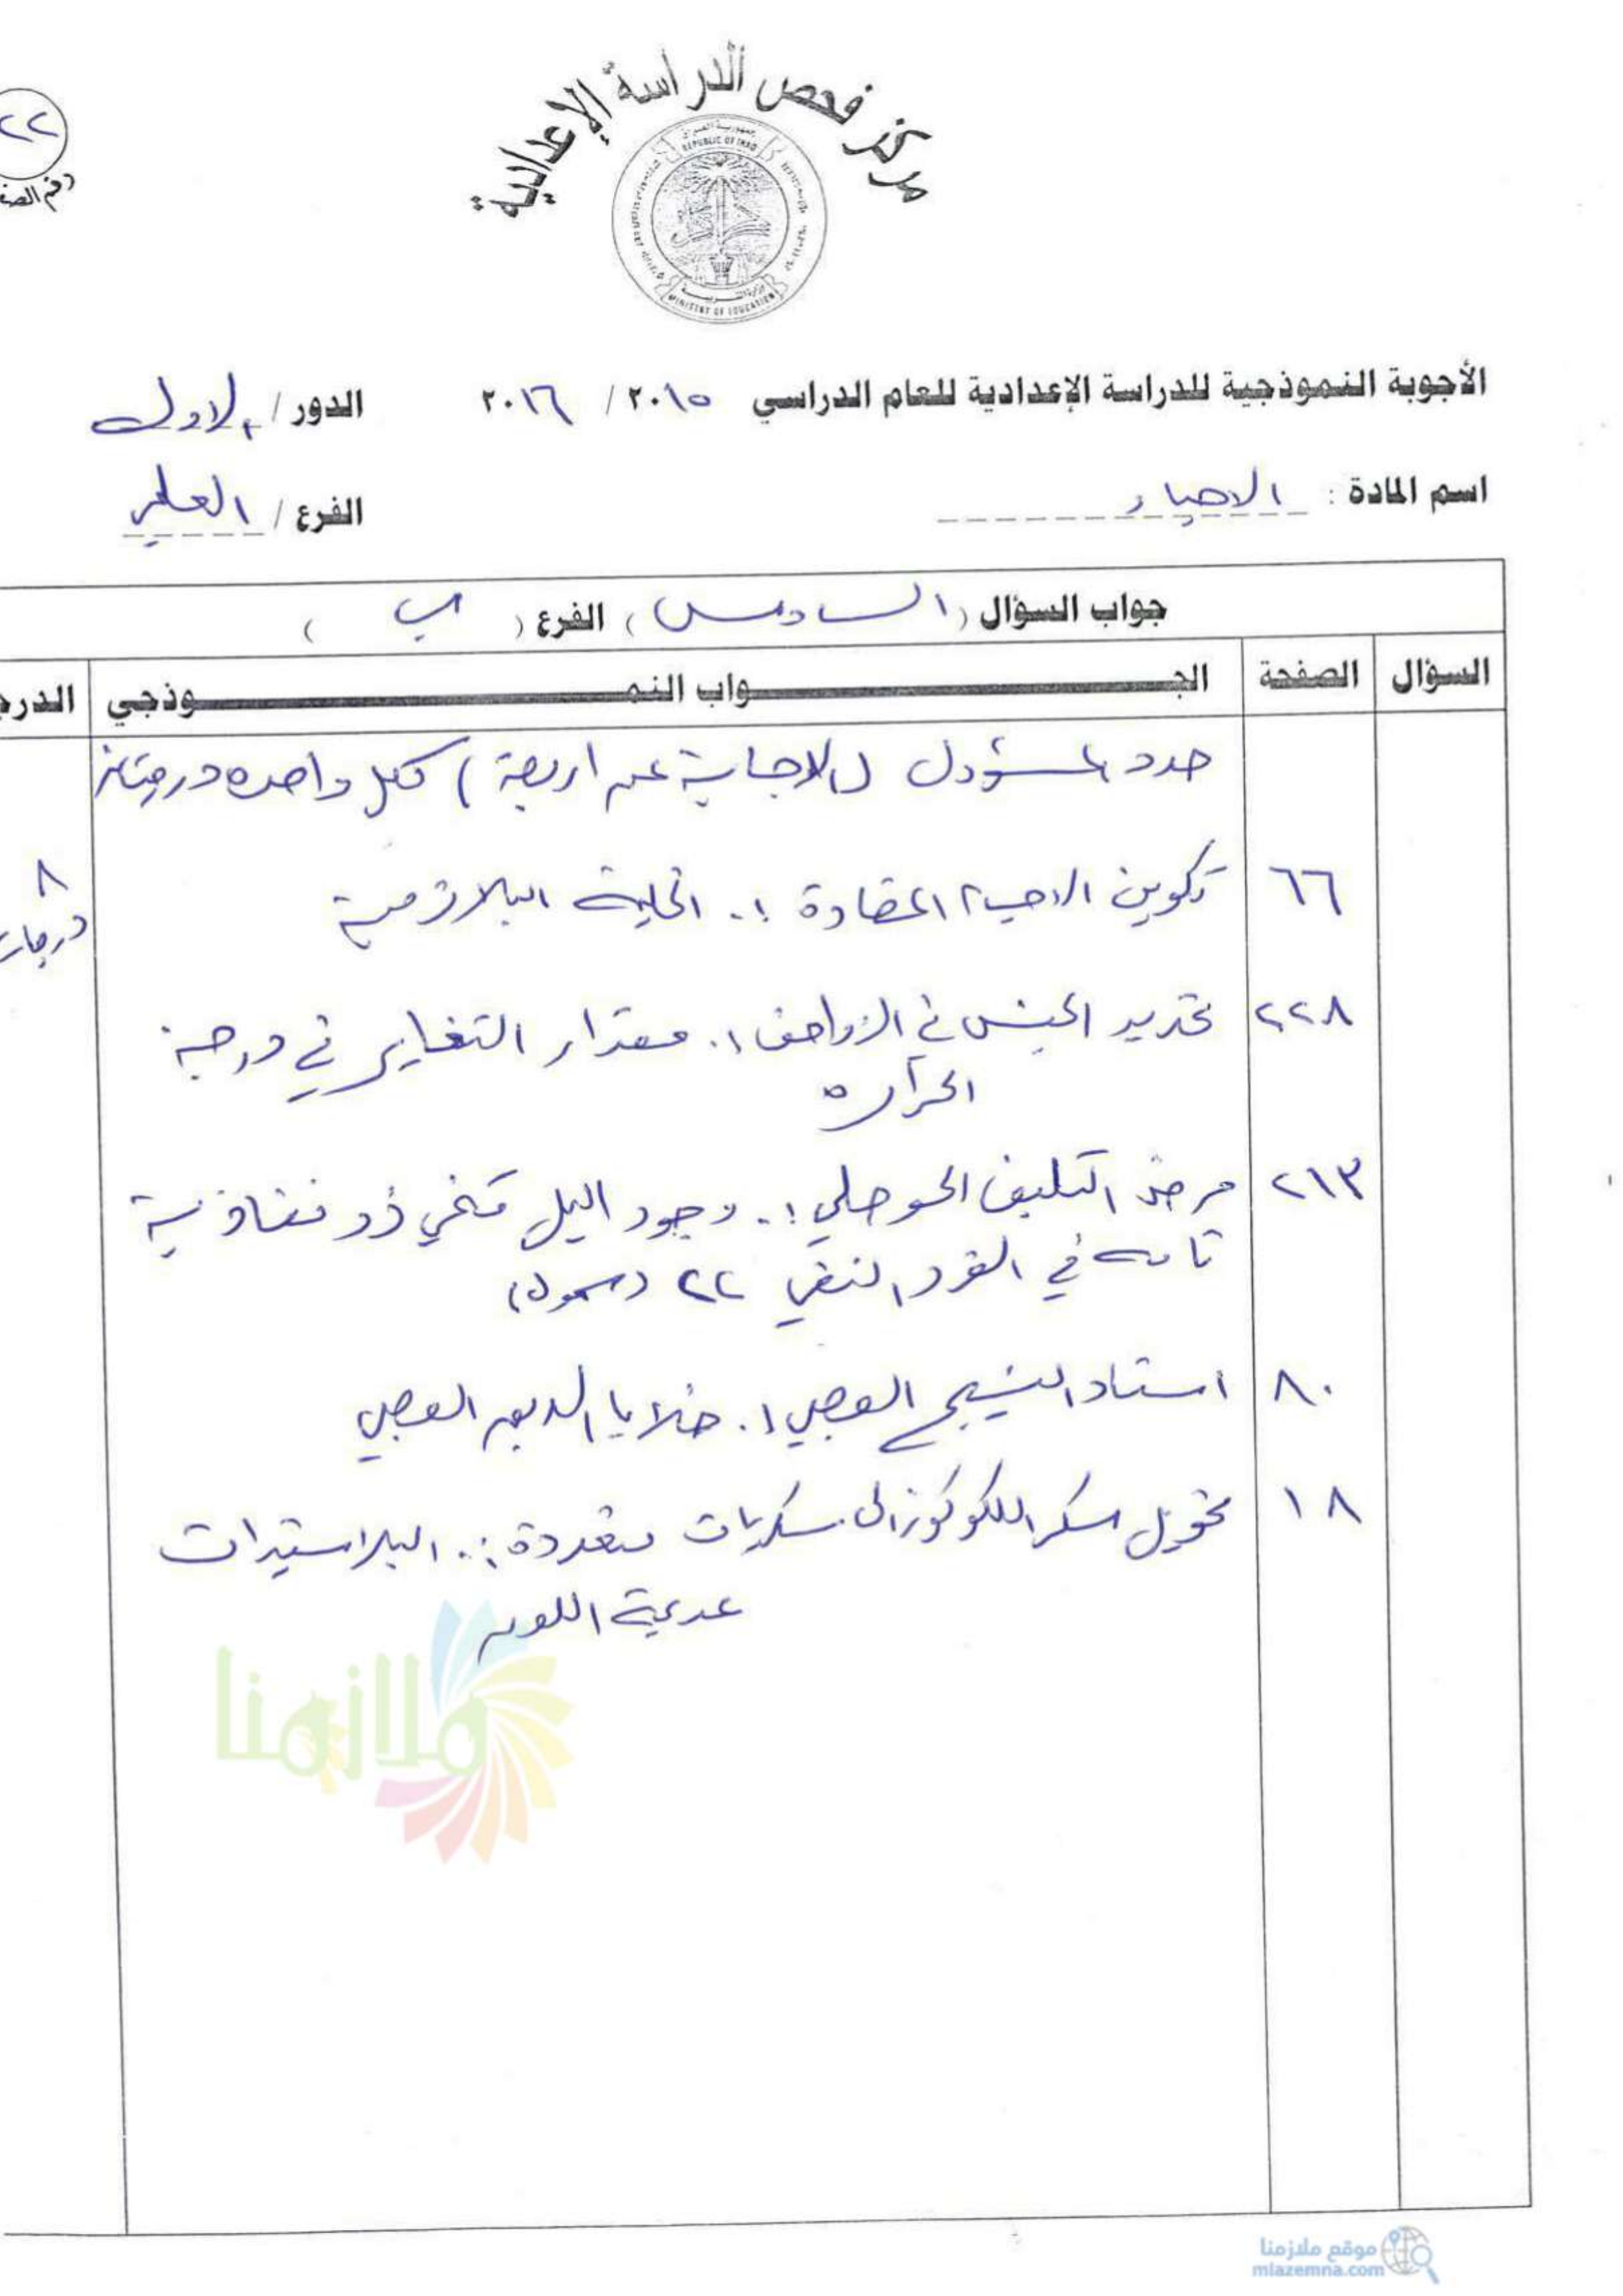 مركز فحص الدراسة الإعدادية
REPUBLIC OF IRAQ
MINISTRY OF EDUCATION
٢٢
رقم الصف
الأجوبة النموذجية للدراسة الإعدادية للعام الدراسي ٢٠١٥ / ٢٠١٦ الدور / الاول
اسم المادة : الاحياء الفرع / العلمي
جواب السؤال ( السادس ) الفرع ( ب )
السؤال الصفحة الجـــواب النمـــوذجي الدرج
حدد المسؤول (الاجابة عن اربعة) لكل واحده درجتان
٦٦ تكوين الاجسام المضادة :. الخلية البلازمية
٨ درجات
٢٢٨ تحديد الجنس في الزواحف :. مقدار التغاير في درجة
الحرارة
٢١٣ مرض التليف الحوصلي :. وجود اليل متنحي ذو نفاذية
تامه في الفرد النقي ٢٢ (سمول)
٨٠ اسناد النسيج العصبي :. خلايا الدبق العصبي
١٨ تحويل سكر الكلوكوز الى سكريات متعددة :. البلاستيدات
عديمة اللون
ملازمنا
موقع ملازمنا
mlazemna.com